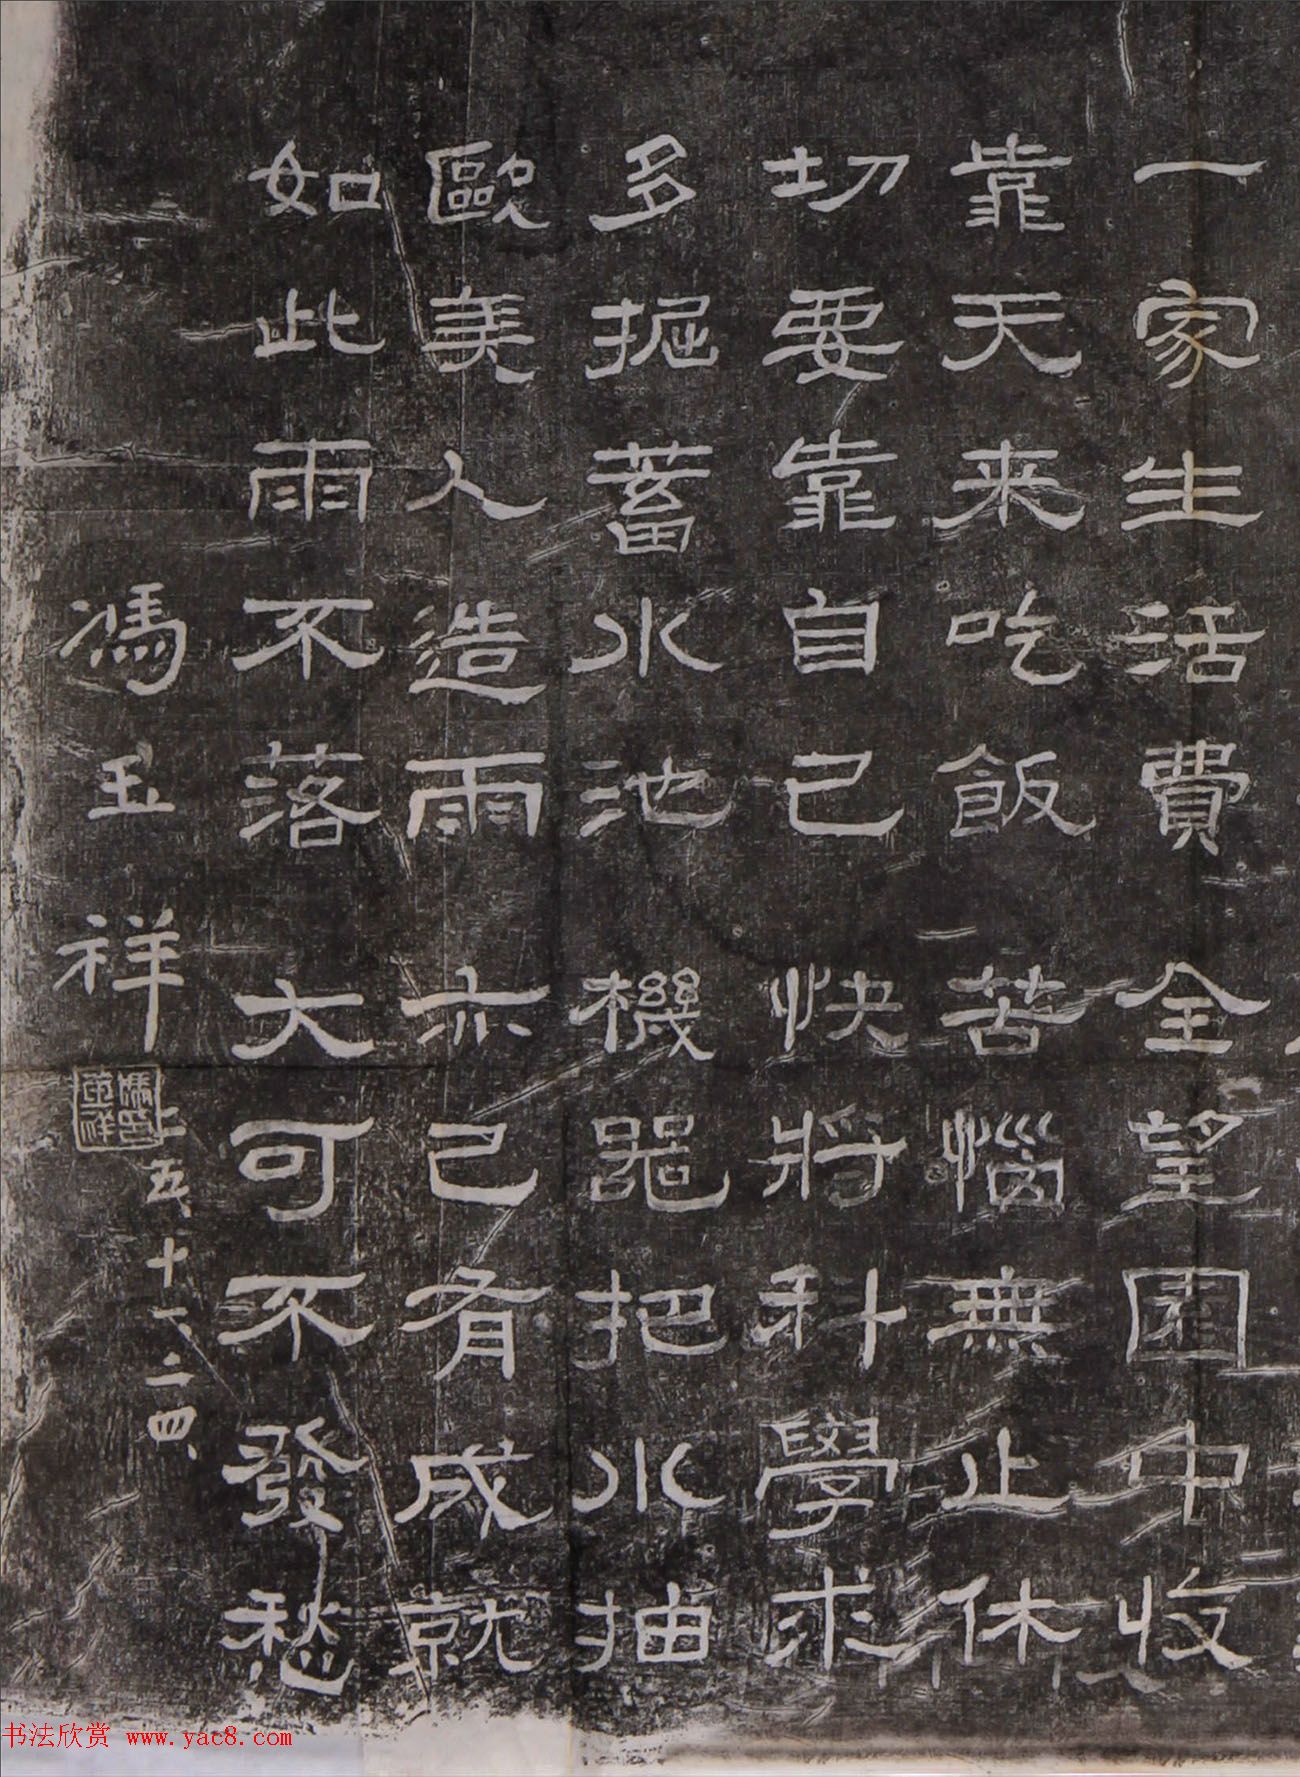 一家生活費 全望園中收
靠天来吃飯 苦惱無止休
切要靠自己 快將科學求
多掘蓄水池 機器把水抽
歐美人造雨 亦已有成就
如此雨不落 大可不發愁
馮玉祥
二五、十一、二四、
書法欣賞 www.yac8.com